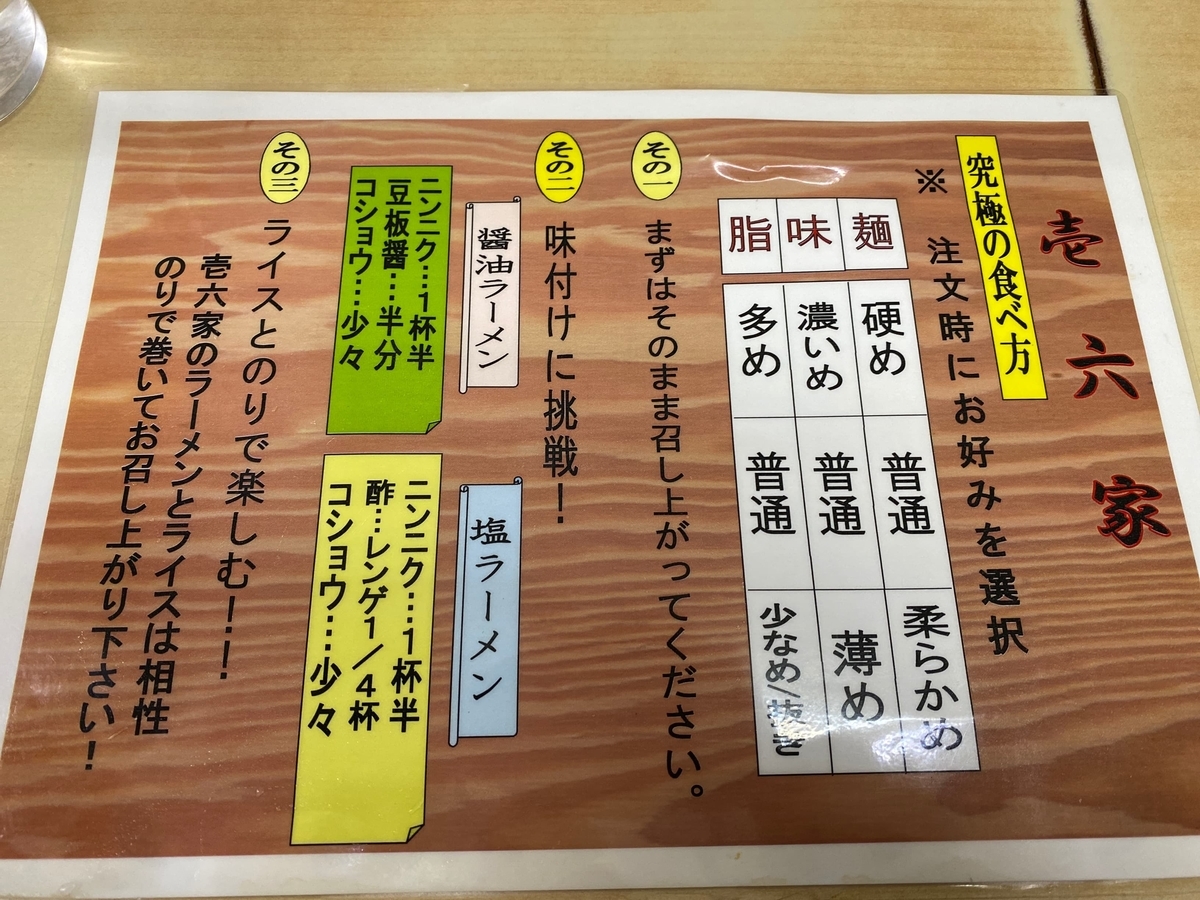 壱六家
究極の食べ方
※ 注文時にお好みを選択
麺 硬め 普通 柔らかめ
味 濃いめ 普通 薄め
脂 多め 普通 少なめ/抜き
その一 まずはそのまま召し上がってください。
その二 味付けに挑戦！
醤油ラーメン
ニンニク…1杯半
豆板醤…半分
コショウ…少々
塩ラーメン
ニンニク…1杯半
酢…レンゲ1/4杯
コショウ…少々
その三 ライスとのりで楽しむ！！
壱六家のラーメンとライスは相性
のりで巻いてお召し上がり下さい！